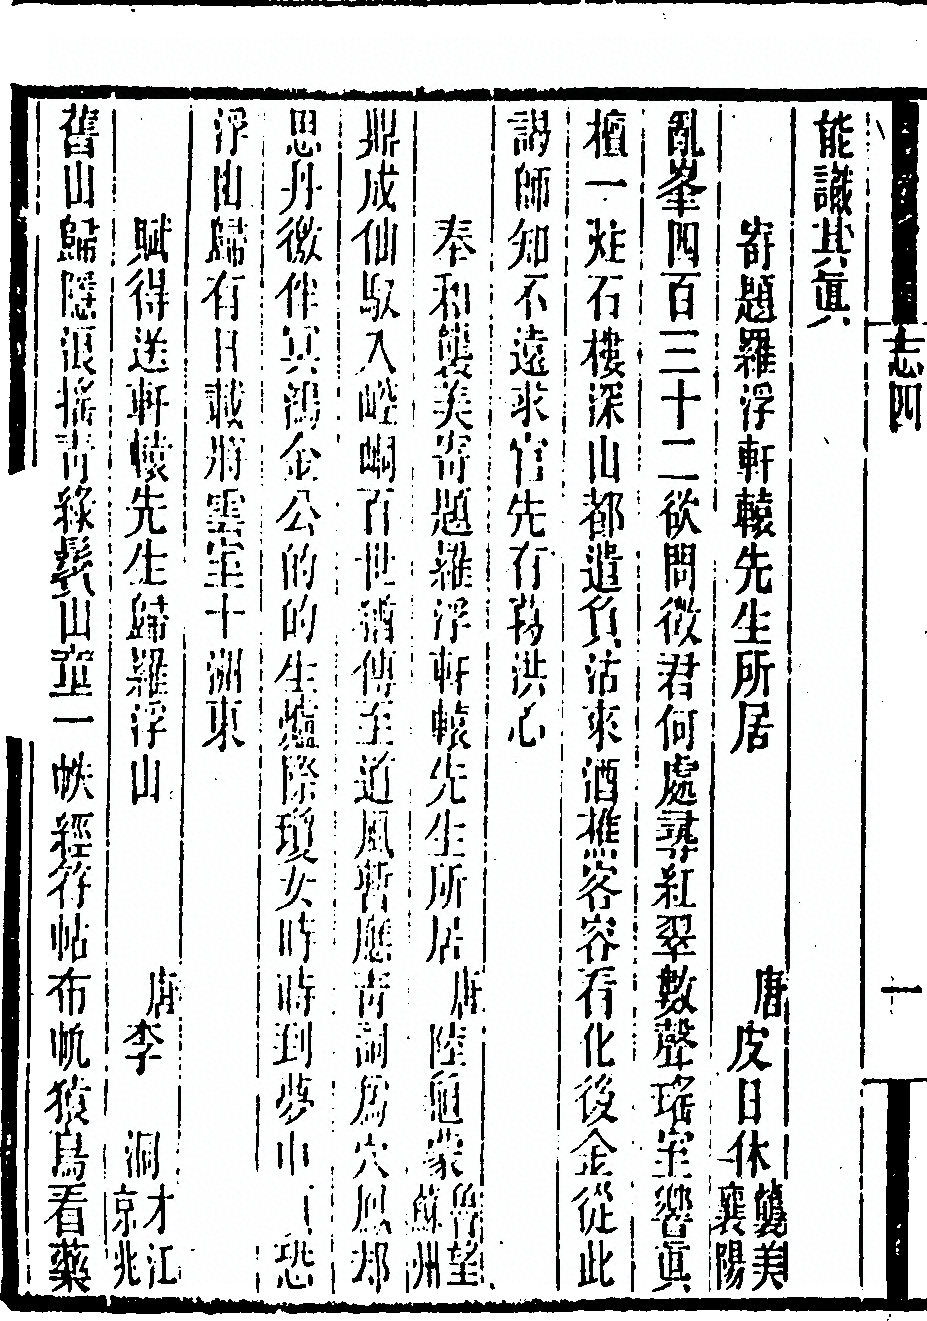 志四
一
能識其眞
寄題羅浮軒轅先生所居 唐皮日休 襲美 襄陽
亂峯四百三十二欲問徵君何處尋紅翠數聲瑤室響眞
檀一炷石樓深山都遣負沽來酒樵客容看化後金從此
謁師知不遠求官先有葛洪心
奉和襲美寄題羅浮軒轅先生所居 唐陸龜蒙 魯望 蘇州
鼎成仙馭入崆峒百世猶傳至道風暫應靑詞爲穴鳳却
思丹徼伴冥鴻金公的的生爐際瓊女時時到夢中恐
浮山歸有日載將雲室十洲東
賦得送軒轅先生歸羅浮山 唐李洞 才江 京兆
舊山歸隱浪搖靑綠鬢山童一帙經符帖布帆猿鳥看藥